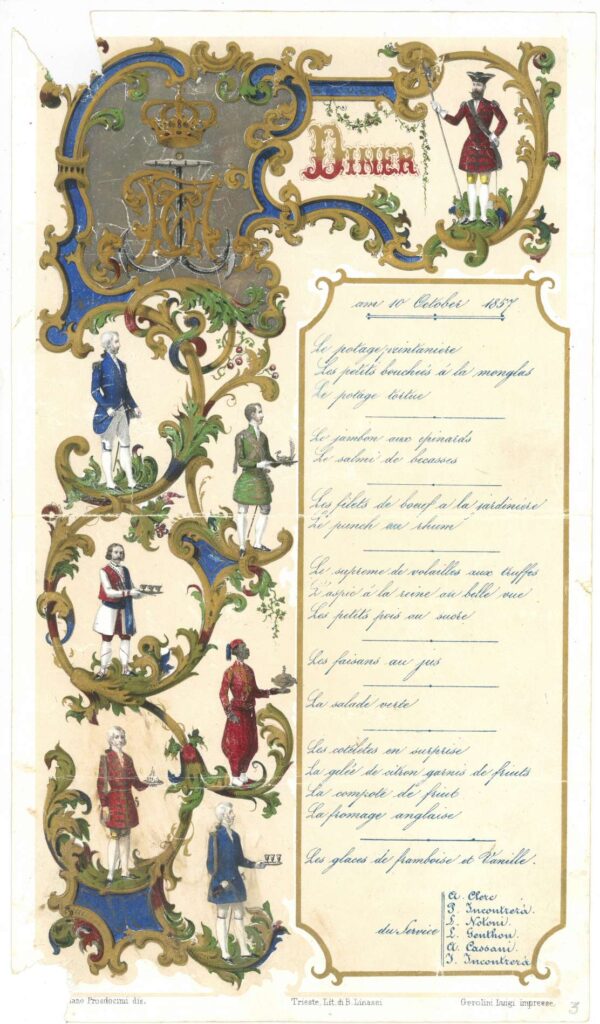 DINER
am 10 October 1857
Le potage printaniere
Les petits bouchées à la monglas
Le potage tortue
Le jambon aux epinards
Le salmi de becasses
Les filets de boeuf a la jardiniere
Le punch au rhum
Le supreme de volailles aux truffes
L'aspic à la reine au belle vue
Les petits pois au sucre
Les faisans au jus
La salade verte
Les cotolètes en surprise
La gelée de citron garnis de friuts
La compote de friut
La fromage anglaise
Les glaces de framboise et Vanille.
du Service
A. Clerc
P. Incontrerà.
L. Genthon.
A. Cassani.
J. Incontrerà
iano Prosdocimi dis.
Trieste, Lit. di B. Linassi
Gerolini Luigi impresse.
3